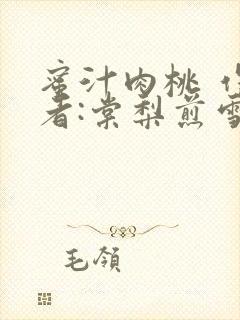 蜜汁肉桃
者:棠梨煎雪
毛领